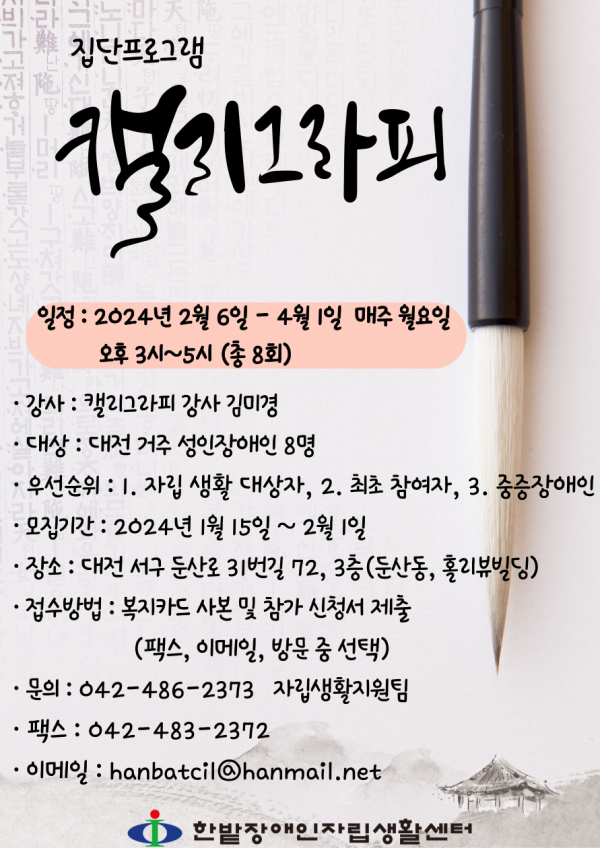 집단프로그램
캘리그라피
일정 : 2024년 2월 6일 - 4월 1일 매주 월요일
오후 3시~5시 (총 8회)
· 강사 : 캘리그라피 강사 김미경
· 대상 : 대전 거주 성인장애인 8명
· 우선순위 : 1. 자립 생활 대상자, 2. 최초 참여자, 3. 중증장애인
· 모집기간 : 2024년 1월 15일 ~ 2월 1일
· 장소 : 대전 서구 둔산로 31번길 72, 3층(둔산동, 홀리뷰빌딩)
· 접수방법 : 복지카드 사본 및 참가 신청서 제출
(팩스, 이메일, 방문 중 선택)
· 문의 : 042-486-2373 자립생활지원팀
· 팩스 : 042-483-2372
· 이메일 : hanbatcil@hanmail.net
한밭장애인자립생활센터